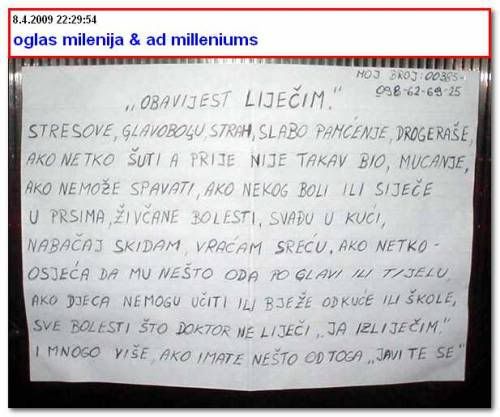 8.4.2009 22:29:54
oglas milenija & ad milleniums
MOJ BROJ: 00385-
098-62-69-25
„OBAVIJEST LIJEČIM."
STRESOVE, GLAVOBOLJU, STRAH, SLABO PAMĆENJE, DROGERAŠE,
AKO NETKO ŠUTI A PRIJE NIJE TAKAV BIO, MUCANJE,
AKO NEMOŽE SPAVATI, AKO NEKOG BOLI ILI SIJEČE
U PRSIMA, ŽIVČANE BOLESTI, SVAĐU U KUĆI,
NABAČAJ SKIDAM, VRAĆAM SREĆU, AKO NETKO-
OSJEĆA DA MU NEŠTO ODA PO GLAVI ILI TIJELU,
AKO DJECA NEMOGU UČITI ILI BJEŽE ODKUĆE ILI ŠKOLE,
SVE BOLESTI ŠTO DOKTOR NE LIJEČI „JA IZLIJEČIM."
I MNOGO VIŠE, AKO IMATE NEŠTO OD TOGA „JAVITE SE"